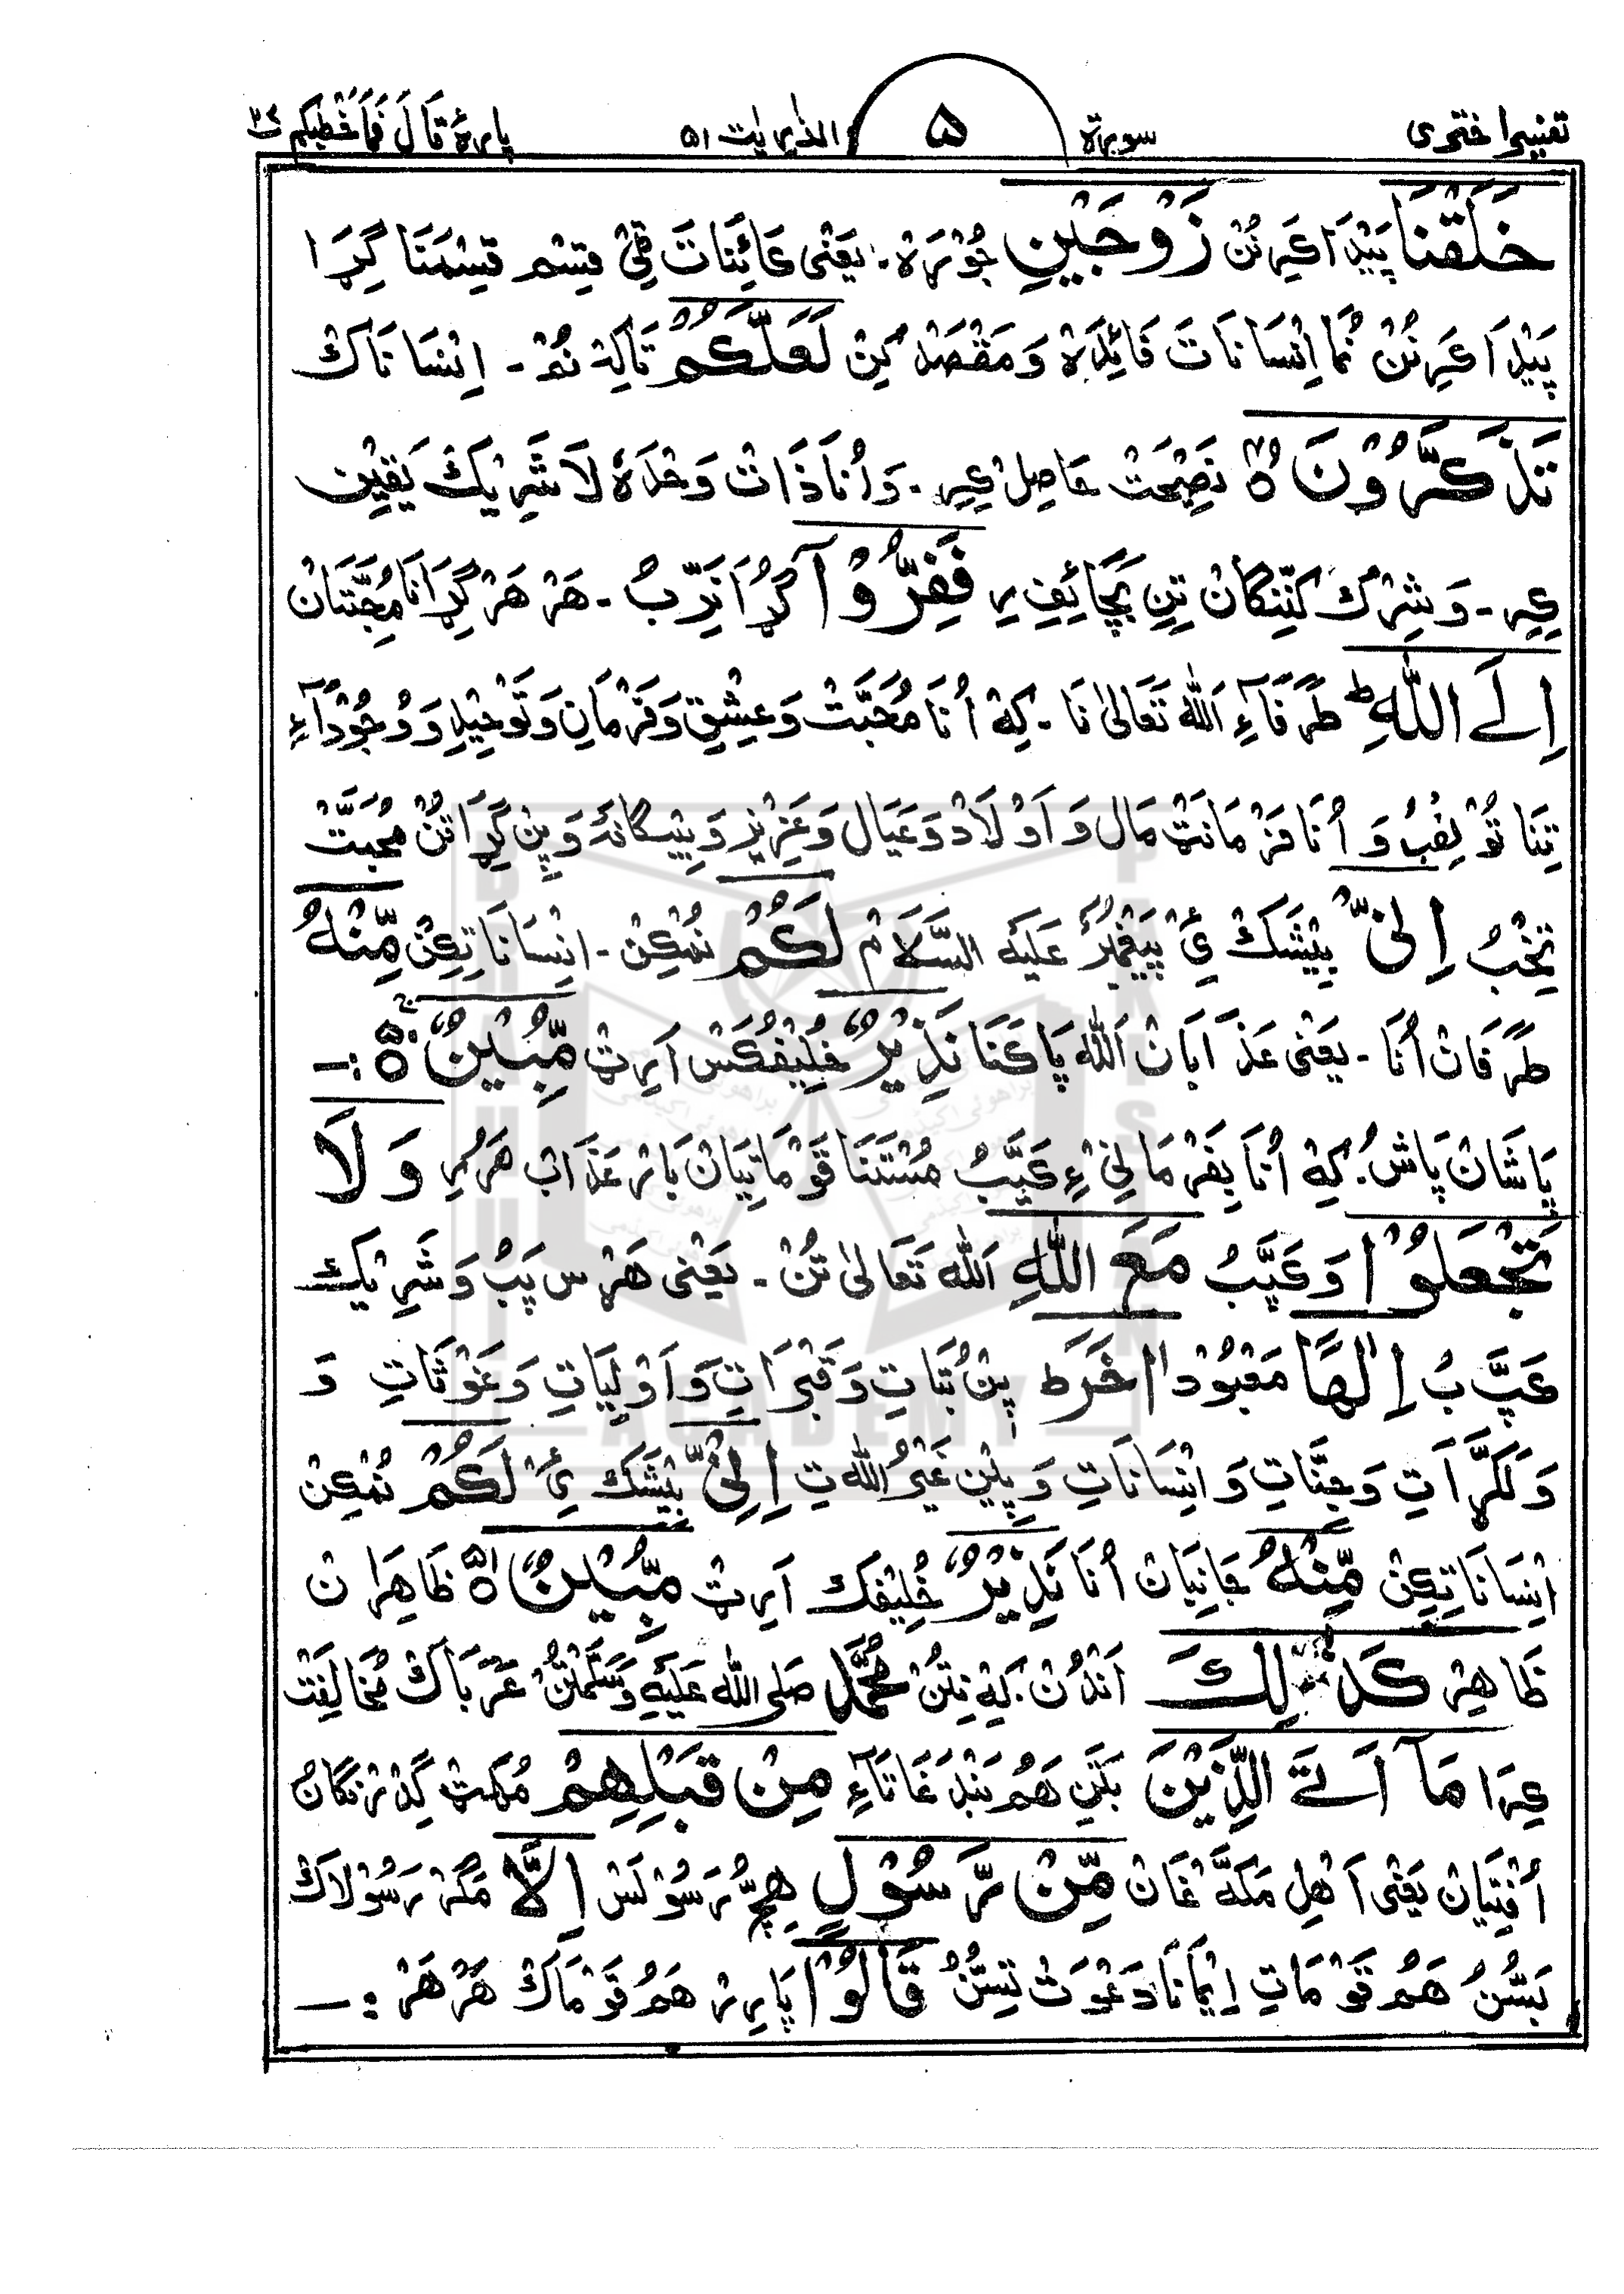 تفسیر اختری سورۃ ۵ الذریٰت ۵۱ پارۂ قَالَ فَمَا خَطْبُکُم ۲۷
خَلَقْنَا پَیْدَا کَرِنُن زَوْجَیْنِ جُوْڑَہ۔ یَعْنٰی کَائِنَاتَ ٹِیْ قِسْم قِسْمَنَا گِڑَا
پَیْدَا کَرِنُنْ نُمَا اِنْسَانَاتَ فَائِدَہْ وَ مَقْصَدْ کِنْ لَعَلَّکُمْ تَاکِہْ نُمْ۔ اِنْسَانَاکْ
تَذَکَّرُوْنَ ۵ نَصِیْحَتْ حَاصِلْ کِرِ۔ وَ اُنَا ذَاتْ وَحْدَہٗ لَا شَرِیْکْ یَقِیْن
کِرِ۔ وَ شِرْکْ کَنِّنْگَانْ تِنِ بَچَائِفِرِ فَفِرُّوْآ گُڑَا نَرِّبُ۔ ہَرْ ہَرْ گِڑَانَا مُحَبَّتَانْ
اِلَی اللّٰہِ ط طَرَفَآءِ اَللّٰہ تَعَالٰی نَا۔ کِہْ اُنَا مُحَبَّتْ وَ عِشْقِ وَ فَرْمَانِ وَ تَوْحِیْدِ وَ وُجُوْدَآءِ
تِنَا تُوْرِفبُ وَ اُنَا فَرْمَانَتْ مَال وَ اَوْلَادْ وَ عَیَال وَ عَزِیْزِ وَ بِیْگَانَہ وَ پِن گِڑَاتُنْ مُحَبَّتْ
تَخْبُ اِنِّیْ بِیْشَکْ ئِیْ پَیْغَمْبَرُ عَلَیْہِ السَّلَامْ لَکُمْ نُمْکِنْ۔ اِنْسَانَاتِکِنْ مِّنْہُ
طَرَفَانْ اُنَا۔ یَعْنٰی عَذَابَانْ اَللّٰہ پَاکَنَا نَذِیْرٌ خُلِیْفُکَسْ اَرِیْٹ مُّبِیْنٌ ۵ :۔
پَاشَانْ پَاشْ۔ کِہْ اُنَا بِفَرْمَانِیْ ءِ کَپَّبُ مُسْتَنَا قَوْمَاتِیَانْ بَارْ عَذَابْ ہَرُرِ وَ لَا
تَجْعَلُوْا وَ کَپَّبُ مَعَ اللّٰہِ اَللّٰہ تَعَالٰی تُنْ۔ یَعْنٰی ہَرْسَ پَبُ وَ شَرِیْکْ
کَپَّبُ اِلٰہًا مَعْبُوْد اٰخَرَ ط پِنْ بُتَاتِ وَ قَبْرَاتِ وَ اَوْلِیَاتِ وَ غَوْثَاتِ وَ
وَ لَکَّرَاتِ وَ جِنَّاتِ وَ اِنْسَانَاتِ وَ پِلِیْنِ غَیْرُ اللّٰہ تِ اِنِّیْ بِیْشَکْ ئِیْ لَکُمْ نُمْکِنْ
اِنْسَانَاتِکِنْ مِّنْہُ جَانِبَانْ اُنَا نَذِیْرٌ خُلِیْفُکْ اَرِیْٹ مُّبِیْنٌ ۵۱ ظَاہِرَانْ
ظَاہِرْ کَذٰلِکَ اَنْدُنْ۔ کِہْ نِتُنْ مُحَمَّدْ صلی اللّٰہ عَلَیْہِ وَسَلَّمْتُنْ عَرَبَاکْ مُخَالِفَتْ
کِرَا مَآ اَتَی الَّذِیْنَ بَتَنِ ہَمْ بَنْدَغَاتَآءِ مِنْ قَبْلِہِمْ مُہَتْ گِدْرِنْگَانُ
اُفْتِیَانْ یَعْنٰی اَہْلِ مَکَّہ غَانْ مِّنْ رَّسُوْلٍ ہِچُّ رَسُوْلَسْ اِلَّا مَگَرْ رَسُوْلَاکْ
بَسُّنُ ہَمْ قَوْمَاتِ اِیْمَانَا دَعْوَتْ تِسُّنُ قَالُوْا پَارِرْ ہَمْ قَوْمَاکْ ہَرْ ہَرْ :۔
BRAHUI
ACADEMY
PAKISTAN